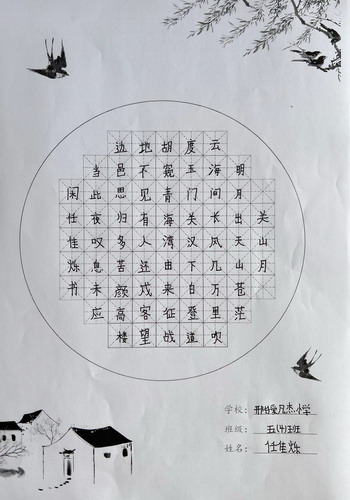 关山月
明月出天山苍茫
云海间长风几万里吹
度玉门关汉下白登道
胡窥青海湾由来征战
地不见有人还戍客望
边邑思归多苦颜高楼
当此夜叹息未应
闲任佳烁书
学校：小学
班级：五(4)班
姓名：任佳烁